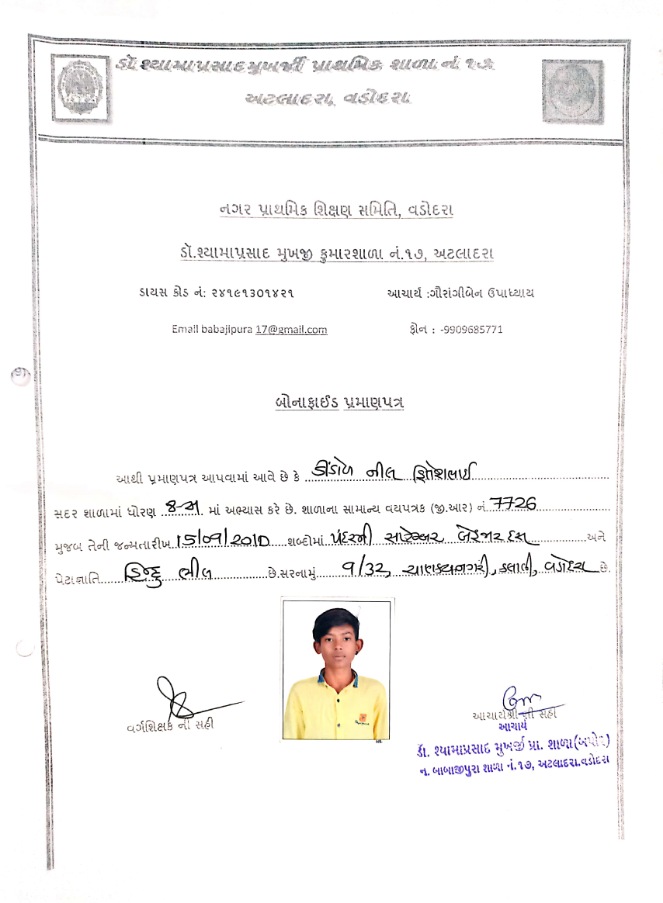 ડૉ.શ્યામાપ્રસાદ મુખર્જી પ્રાથમિક શાળા નં ૧૭
અટલાદરા, વડોદરા
નગર પ્રાથમિક શિક્ષણ સમિતિ, વડોદરા
ડૉ.શ્યામાપ્રસાદ મુખજી કુમારશાળા નં.૧૭, અટલાદરા
ડાયસ કોડ નં: ૨૪૧૯૧૩૦૧૪૨૧ આચાર્ય :ગૌરાંગીબેન ઉપાધ્યાય
Email babajipura 17@gmail.com ફોન : -9909685771
બોનાફાઈડ પ્રમાણપત્ર
આથી પ્રમાણપત્ર આપવામાં આવે છે કે નીલ
સદર શાળામાં ધોરણ 8-અ માં અભ્યાસ કરે છે. શાળાના સામાન્ય વયપત્રક (જી.આર) નં 7726
મુજબ તેની જન્મતારીખ 15/09/2010 શબ્દોમાં પંદરમી સપ્ટેમ્બર બેહજાર દસ અને
પેટાજ્ઞાતિ હિન્દુ ભીલ છે.સરનામું ૧/૩૨, ચાણક્યનગરી, કલાલી, વડોદરા છે.
વર્ગશિક્ષક ની સહી આચાર્યશ્રી ની સહી
આચાર્ય
ડૉ. શ્યામાપ્રસાદ મુખર્જી પ્રા. શાળા(બપોર)
ન. બાબાજીપુરા શાળા નં.૧૭, અટલાદરા.વડોદરા